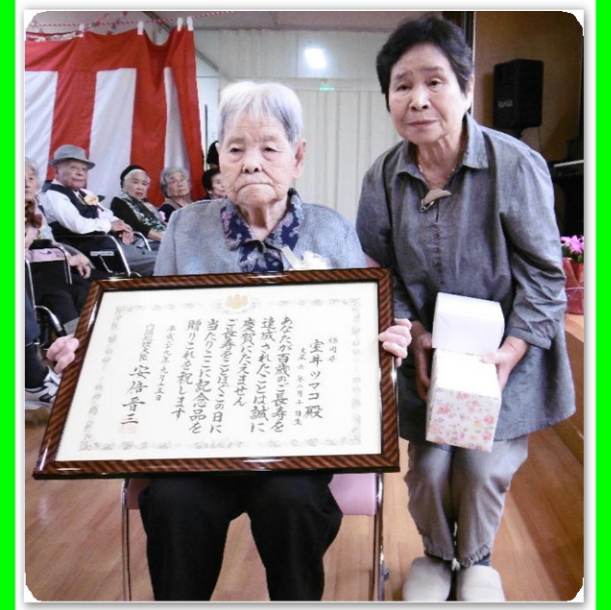 宝井ツマコ 殿
あなたが百歳のご長寿を
達成されたことは誠に
慶賀にたえません
ご長寿をことほぎこの日に
当たりここに記念品を
贈りこれを祝します
平成二十九年九月十五日
内閣総理大臣 安倍晋三